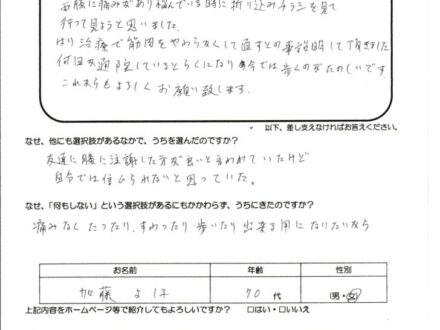 右膝に痛みがあり悩んでいる時に折り込みチラシを見て
行って見ようと思いました。
はり治療で筋肉をやわらなくして直すとの事説明して頂きました
何回か通院しているとらくになり今では歩くのがたのしいです。
これからもよろしくお願い致します。
以下、差し支えなければお答えください。
なぜ、他にも選択肢があるなかで、うちを選んだのですか?
友達に膝に注謝した方が良いと言われていたけど
自分では信んじられないと思っていた。
なぜ、「何もしない」という選択肢があるにもかかわらず、うちにきたのですか?
痛みなくたったり、すわったり歩いたり出来る用になりたいから
お名前 年齢 性別
加藤 よし子 70 代 (男・女)
上記内容をホームページ等で紹介してもよろしいですか? □はい・□いいえ